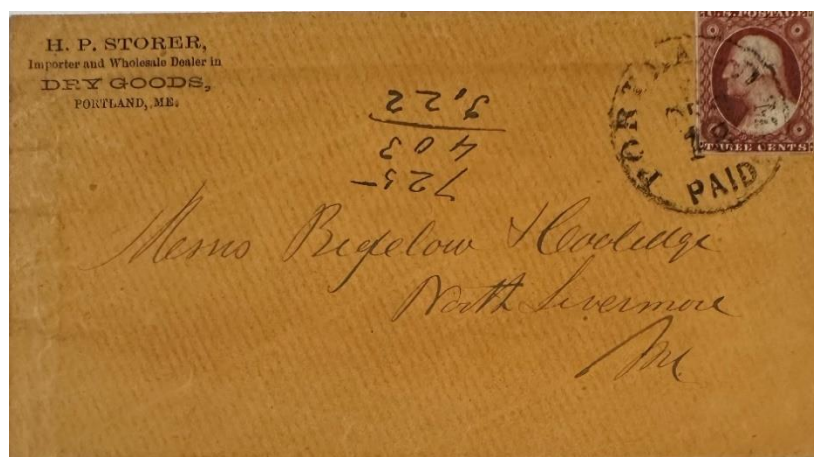 H. P. STORER,
Importer and Wholesale Dealer in
DRY GOODS,
PORTLAND, ME.
U.S. POSTAGE
THREE CENTS
PORTLAND ME
PAID
725
403
3,22
Messrs Bigelow & Coolidge
North Livermore
Me